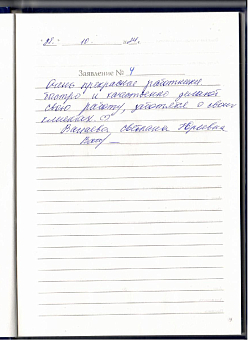 "28" 10. 2024.
Заявление № 4
Очень прекрасные работники
быстро и качественно делают
свою работу, заботятся о своих
клиентах ♡
Светлана Юрьевна